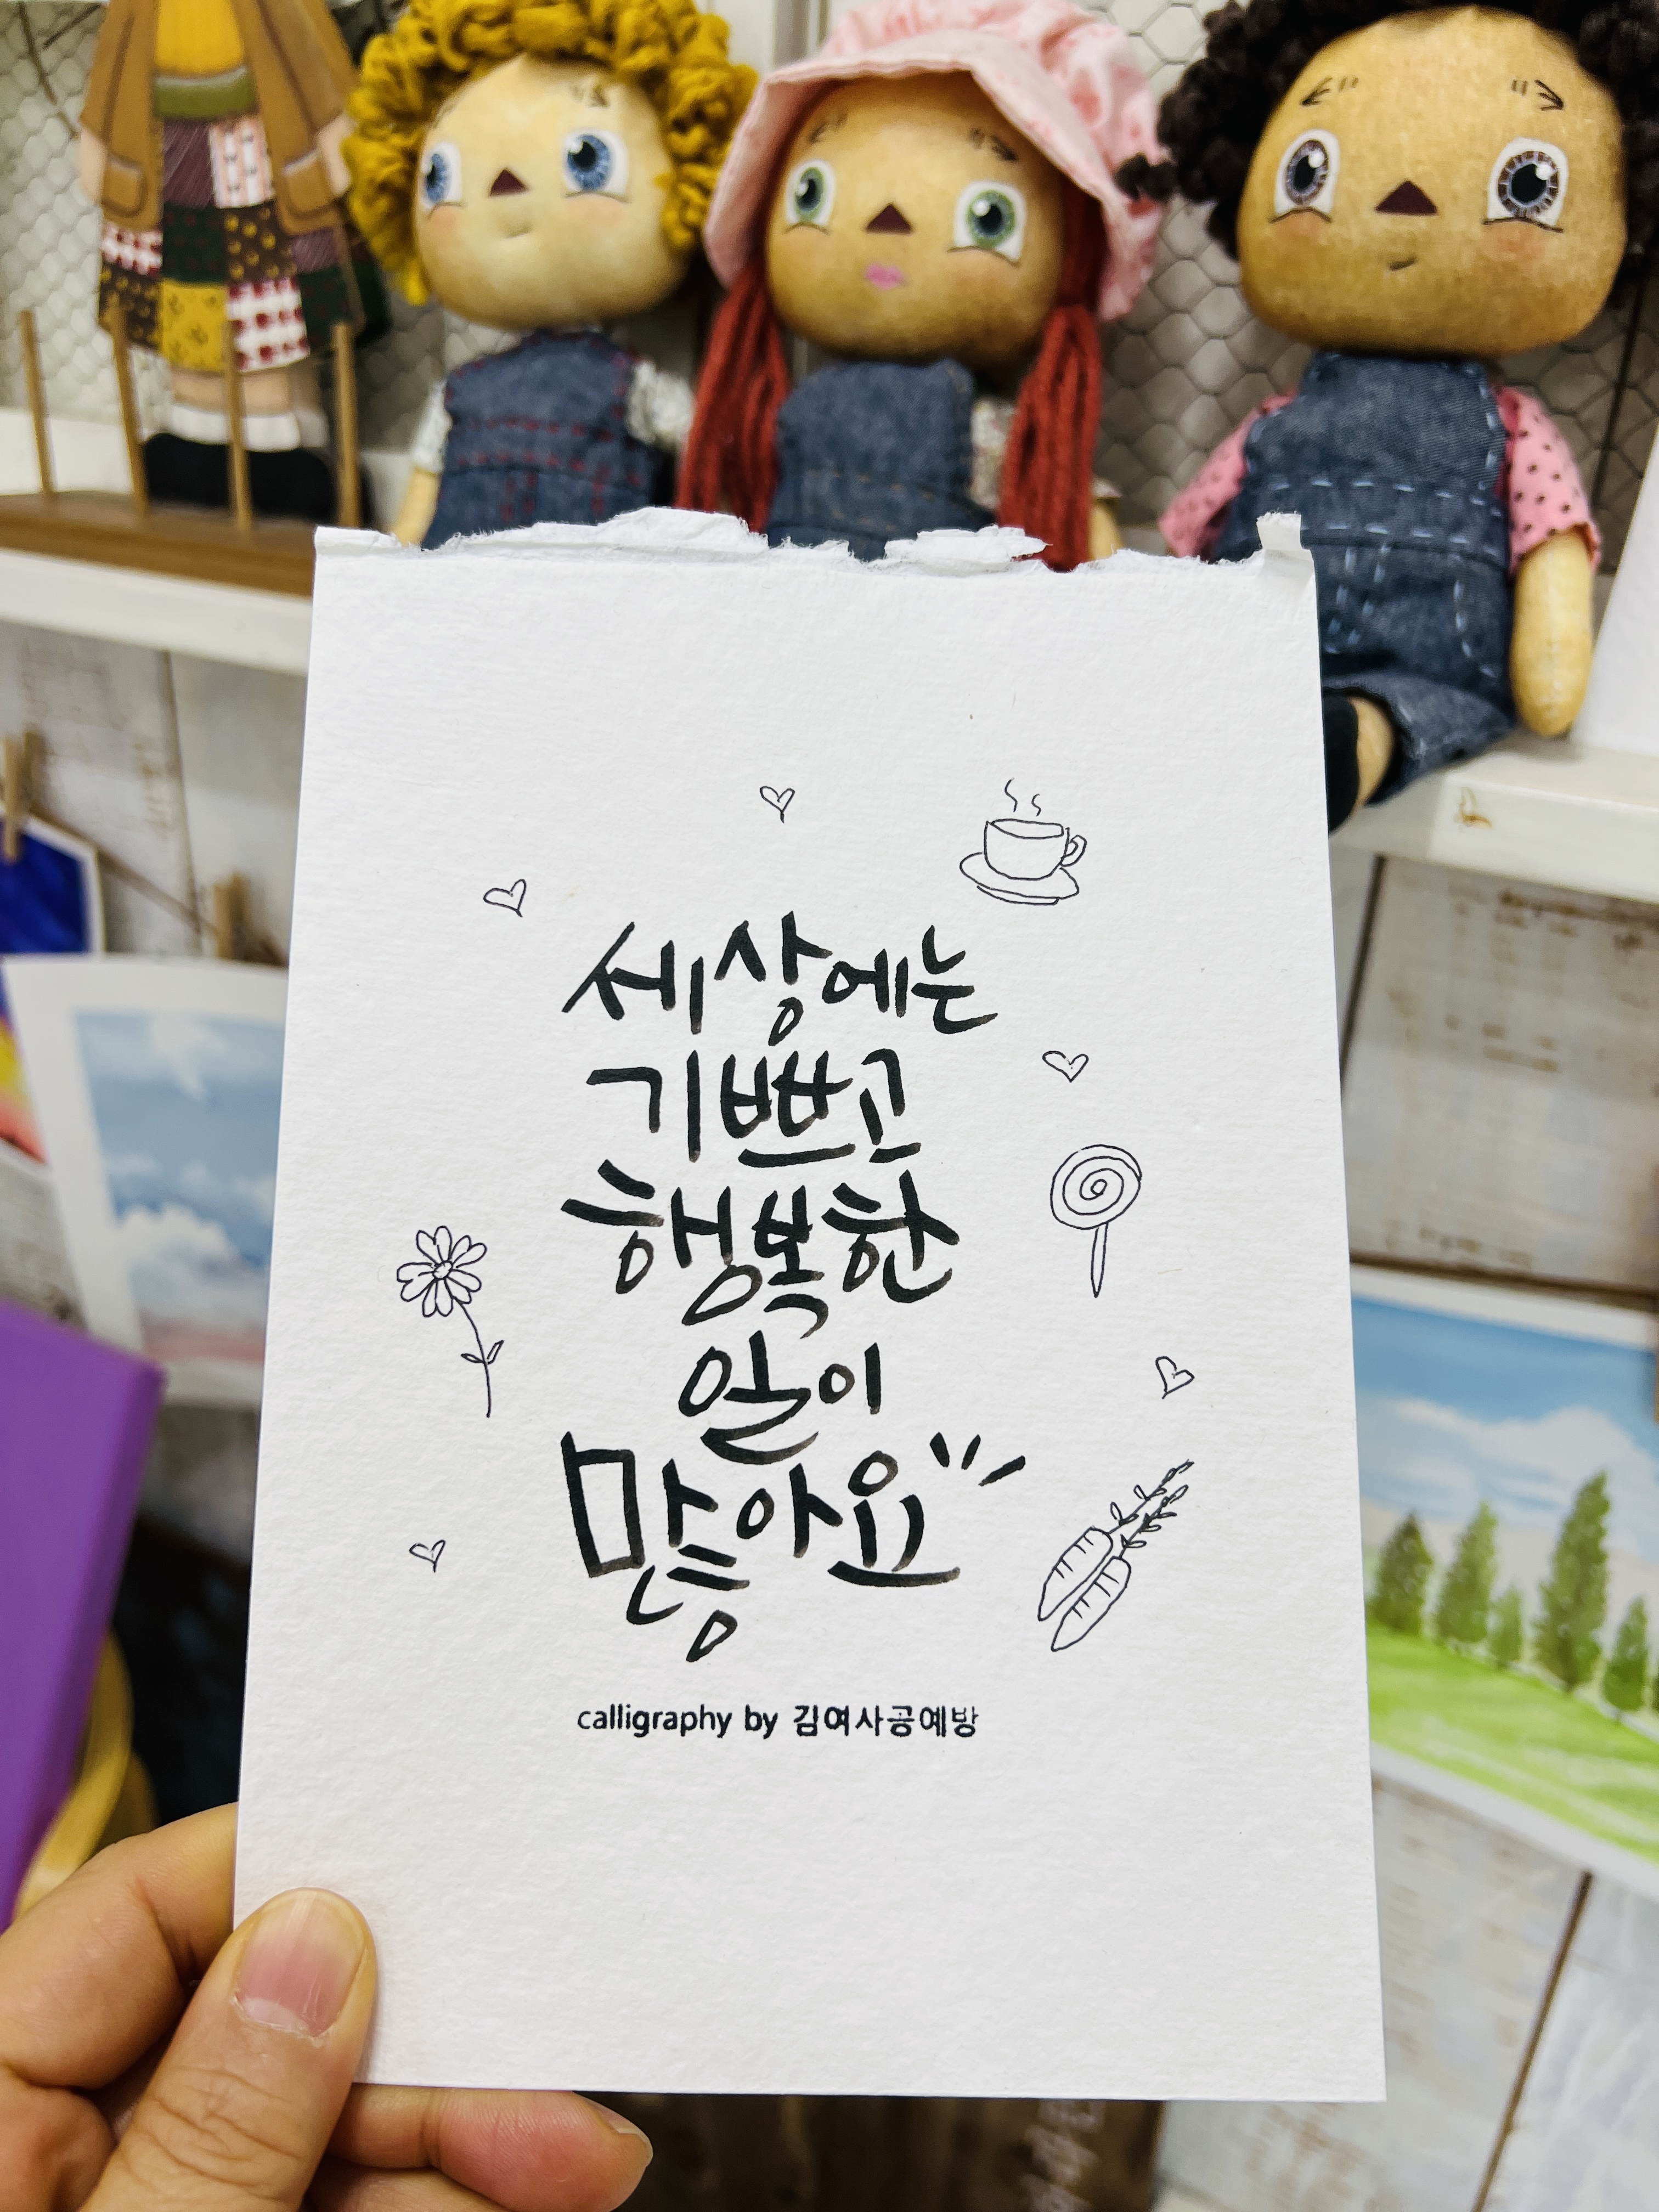 세상에는
기쁘고
행복한
일이
많아요
calligraphy by 김여사공예방